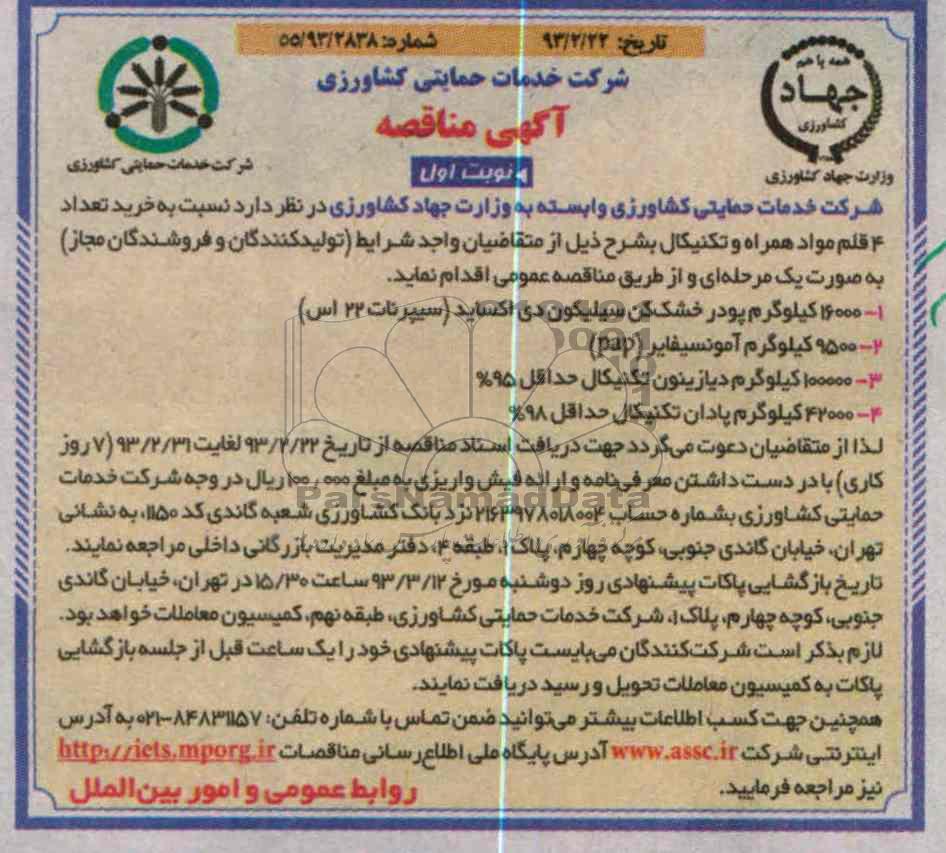 تاریخ: ۹۳/۲/۲۲
شماره: ۵۵/۹۳/۲۸۳۸
همه با هم
جهاد
کشاورزی
وزارت جهاد کشاورزی
شرکت خدمات حمایتی کشاورزی
شرکت خدمات حمایتی کشاورزی
آگهی مناقصه
نوبت اول
شرکت خدمات حمایتی کشاورزی وابسته به وزارت جهاد کشاورزی در نظر دارد نسبت به خرید تعداد
۴ قلم مواد همراه و تکنیکال بشرح ذیل از متقاضیان واجد شرایط (تولیدکنندگان و فروشندگان مجاز)
به صورت یک مرحله‌ای و از طریق مناقصه عمومی اقدام نماید.
۱- ۱۶۰۰۰ کیلوگرم پودر خشک‌کن سیلیکون دی اکساید (سیپرنات ۲۲ اس)
۲- ۹۵۰۰ کیلوگرم آمونسیفایر (pap)
۳- ۱۰۰۰۰۰ کیلوگرم دیازینون تکنیکال حداقل ۹۵%
۴- ۴۲۰۰۰ کیلوگرم پادان تکنیکال حداقل ۹۸%
لذا از متقاضیان دعوت می‌گردد جهت دریافت اسناد مناقصه از تاریخ ۹۳/۲/۲۲ لغایت ۹۳/۲/۳۱ (۷ روز
کاری) با در دست داشتن معرفی‌نامه و ارائه فیش واریزی به مبلغ ۱۰۰,۰۰۰ ریال در وجه شرکت خدمات
حمایتی کشاورزی بشماره حساب ۲۱۶۳۹۷۸۰۱۸۰۰۴ نزد بانک کشاورزی شعبه گاندی کد ۱۱۵۰، به نشانی
تهران، خیابان گاندی جنوبی، کوچه چهارم، پلاک ۱، طبقه ۴، دفتر مدیریت بازرگانی داخلی مراجعه نمایند.
تاریخ بازگشایی پاکات پیشنهادی روز دوشنبه مورخ ۹۳/۳/۱۲ ساعت ۱۵/۳۰ در تهران، خیابان گاندی
جنوبی، کوچه چهارم، پلاک ۱، شرکت خدمات حمایتی کشاورزی، طبقه نهم، کمیسیون معاملات خواهد بود.
لازم بذکر است شرکت‌کنندگان می‌بایست پاکات پیشنهادی خود را یک ساعت قبل از جلسه بازگشایی
پاکات به کمیسیون معاملات تحویل و رسید دریافت نمایند.
همچنین جهت کسب اطلاعات بیشتر می‌توانید ضمن تماس با شماره تلفن: ۸۴۸۳۱۱۵۷-۰۲۱ به آدرس
اینترنتی شرکت www.assc.ir آدرس پایگاه ملی اطلاع‌رسانی مناقصات http://iets.mporg.ir
نیز مراجعه فرمایید.
روابط عمومی و امور بین‌الملل
ParsNamadData